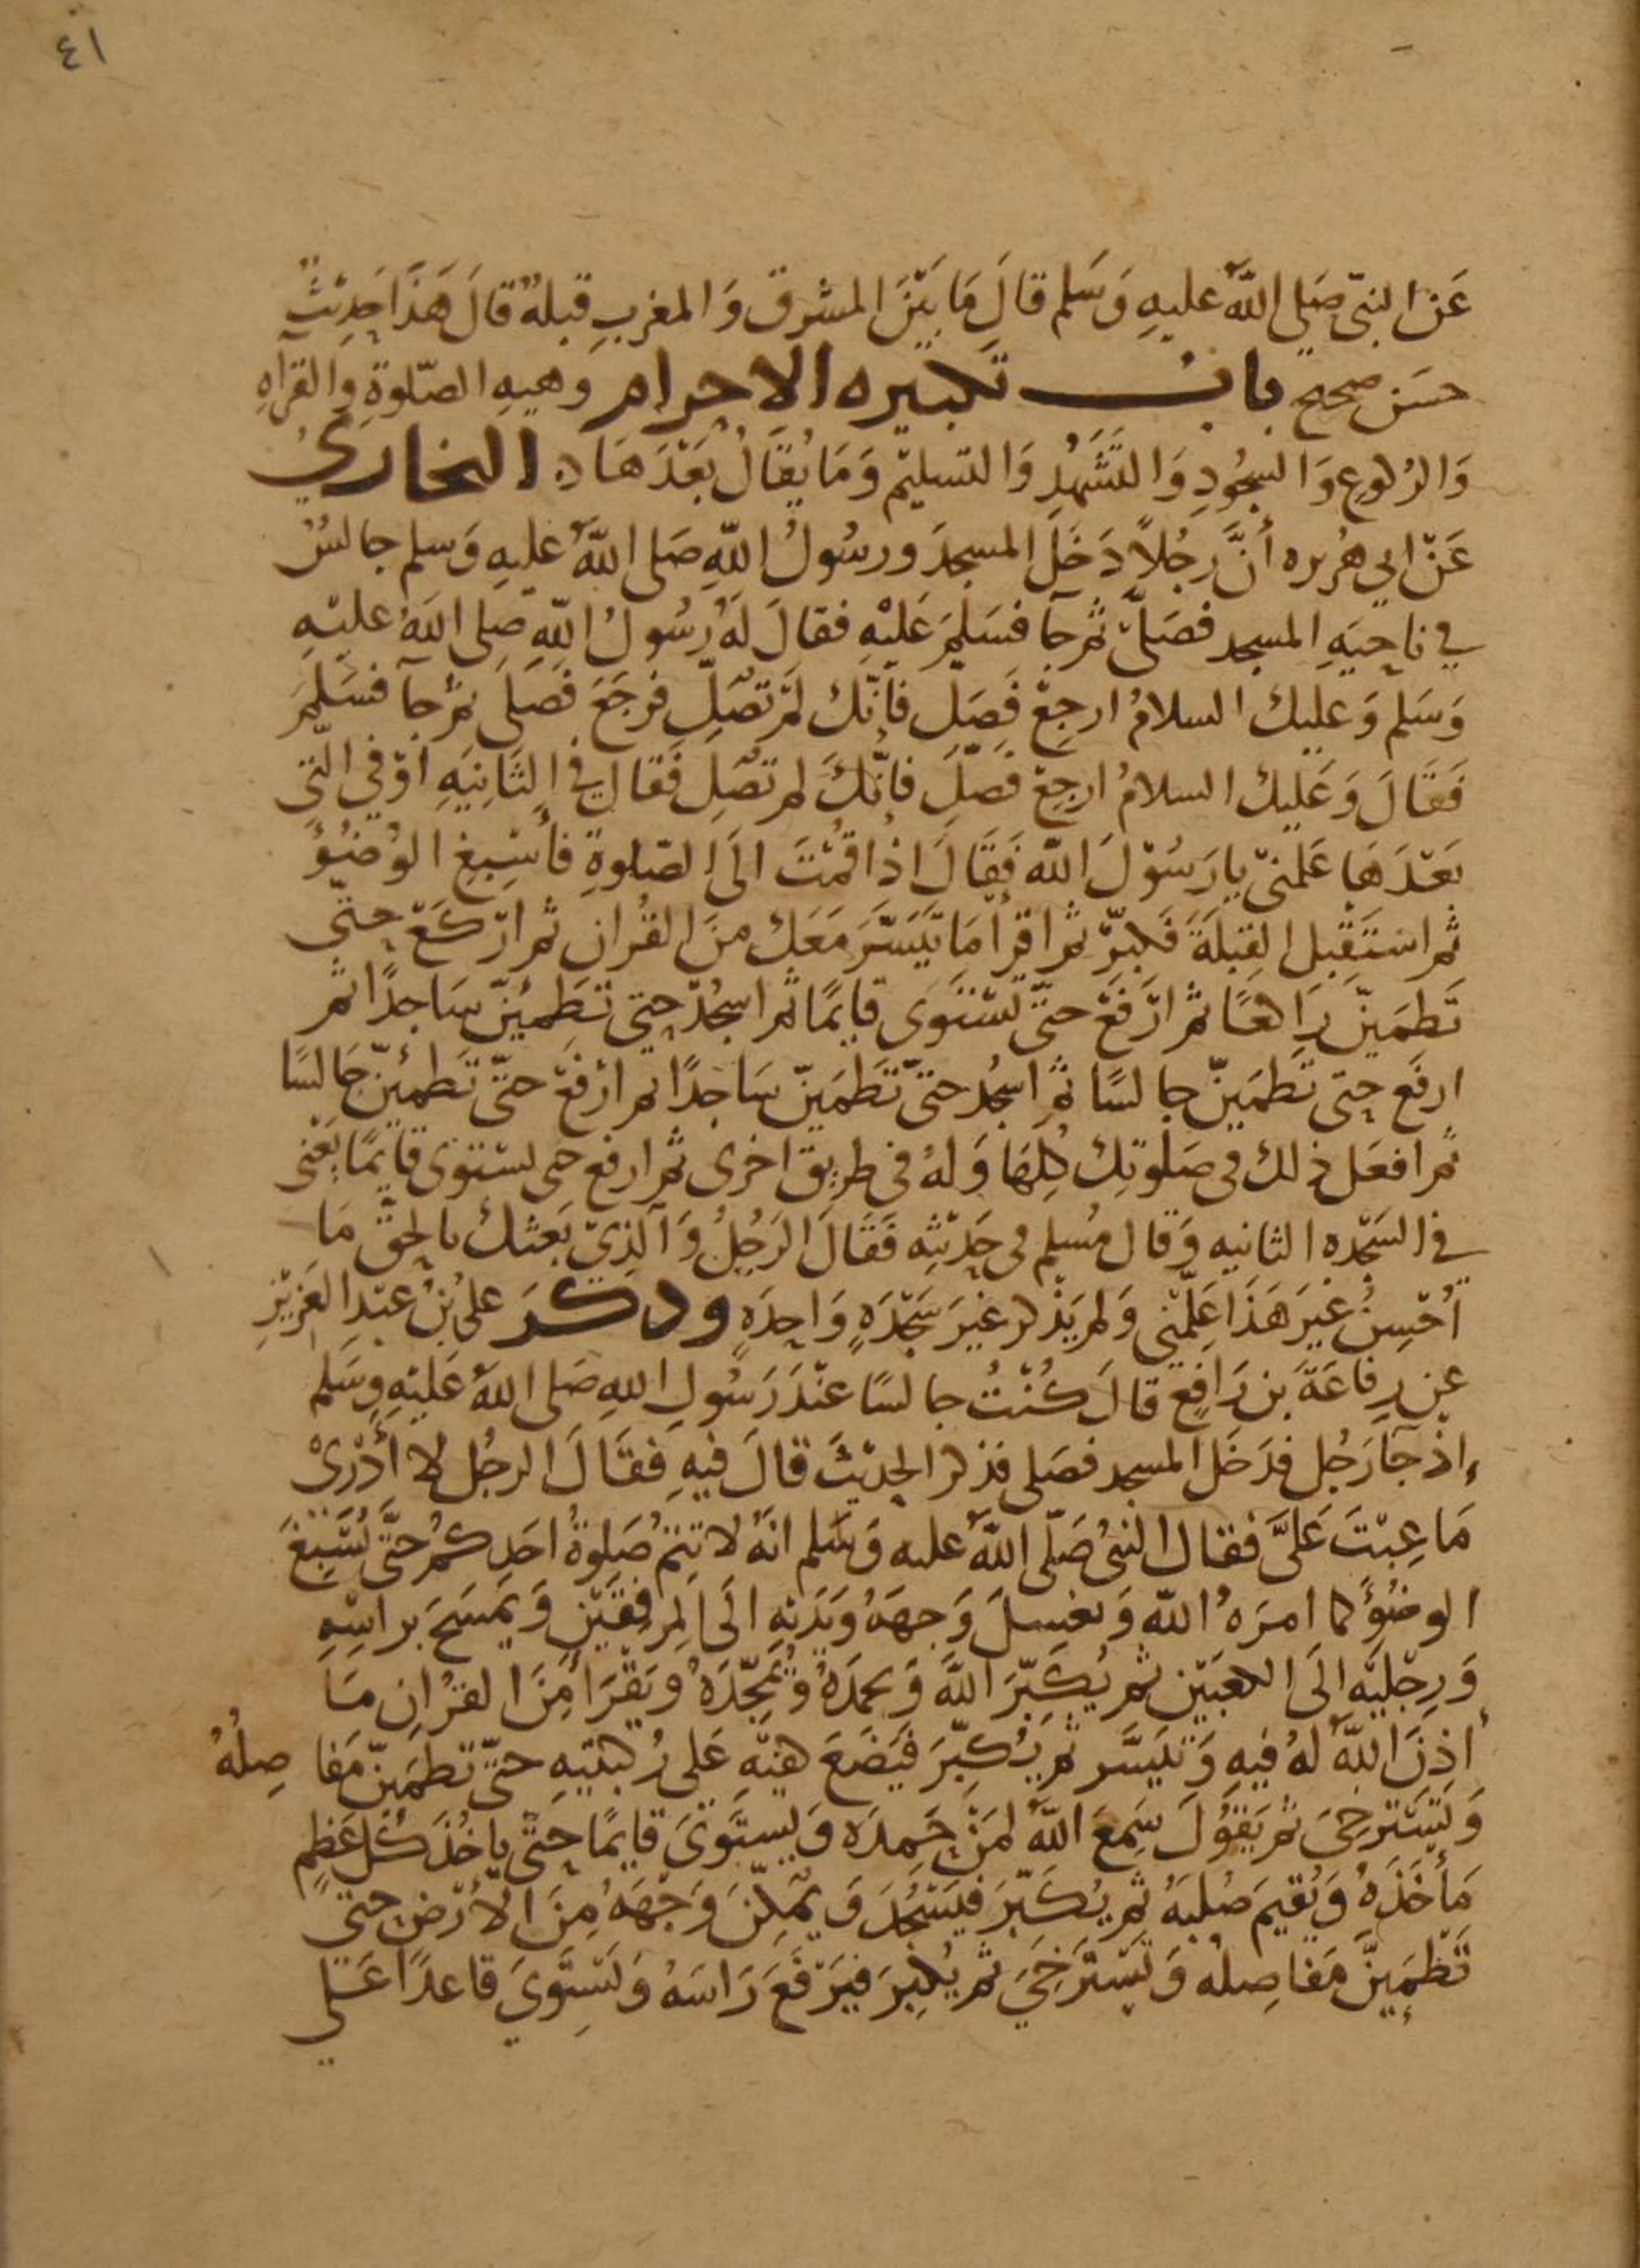 ٤١
عَن النبىّ صَلى اللَّه عليهِ وَسَلم قالَ مَا بَيْنَ المشرق وَالمغربِ قبلةٌ قالَ هَذَا حَدِيْثٌ
حسَن صحيح باب تكبيره الاحرام وهيهِ الصّلوةِ والقرآهِ
وَالركوعِ وَالسجُودِ وَالتَّشَهُدِ وَالتسليْم وَمَا يُقَالُ بَعْدَهَا ه البخاريُ
عَنْ ابي هُريره أنَّ رجُلاً دَخَلَ المسجدَ ورسُولُ اللَّهِ صَلى اللَّهُ عليهِ وَسلم جالسُ
في ناحِيَهِ المسجد فصَلىّ ثم جآ فسَلمَ عَليْهِ فقالَ لهُ رسُولُ اللَّهِ صَلى اللهُ عليْهِ
وَسَلم وَعليك السلامُ ارجِعْ فَصَلِ فانّك لَمْ تصَلِّ فرجَعَ فصَلَى ثم جآ فسَلمَ
فَقَالَ وَعَليك السلامُ ارجِعْ فصَلِّ فانّكَ لم تصَلِ فَقال في الثَانِيَهِ اوْ في الّتي
بَعْدَهَا عَلمنىّ يا رَسُوْلَ اللَّه فَقَالَ اذا قُمْتَ الَى الصّلوةِ فأسْبِغِ الوُضُؤَ
ثم استَقبل القِبْلَةَ فَكبرّ ثم اقرأ مَا تيَسّرَ مَعَك منَ القُران ثم ارْكَعْ حتّى
تَطمَينّ رَاكعًا ثم ارْفَعْ حتىّ تَسْتَوى قايمًا ثم اسجُدْ حتى تَطمِئنّ سَاجدًا ثم
ارفَع حتى تَطمَينّ جالسًا ثم اسجُد حتىّ تَطمَينّ سَاجدًا ثم ارْفعْ حتىّ تَطمئنّ جَالسًا
ثم افعَل ذلك فى صَلوتِك كِلهَا وَلهُ فى طريق اخرى ثم ارفع حتى تستوى قايمًا يَعْنى
في السَجْده الثانيه وَقال مُسلم فى حَدِيْثِه فَقَالَ الرَجُلُ وَالَّذِيْ بَعثك بالحقّ مَا
اُحْسِنُ غَيرَ هَذَا عَلِمّني وَلم يَذْكر غيرَ سَجْدَهٍ وَاحِدَهٍ وذكَرَ علىُ بْنُ عَبْدِ العَزِيْزِ
عن رِفاعَةَ بن رَافِع قالَ كُنْتُ جالسًا عنْدَ رَسُولِ اللهِ صَلى اللهُ عَليْهِ وسَلم
إذْ جآ رَجُل فدَخَلَ المسجد فصَلى فذكر الحديْثَ قالَ فيهِ فقَالَ الرجُل لا أَدْرىْ
مَا عِبْتَ عَلىَّ فقال النبىُ صَلّى اللَّهُ عليه وَسَلم انهُ لا تتِمُ صَلوةُ احَدِكمُ حتَّى يُسْبِغَ
الوضُؤَ كما امرَهُ اللَّه وَيغسلَ وَجهَهُ ويَدَيْهِ الَى المِرفقَيْنِ وَيمسَحَ براسِهِ
وَرِجْليَه الَى الكعبَيْن ثم يُكَبِّرَ اللَّهَ وَيحمدَهُ وَيُمَجّدَهُ ويَقْرَأ مِنَ القرُانِ مَا
اَذِنَ اللَّهُ لهُ فيهِ وَتيَسَّر ثم يُكبِّرَ فيَضَعَ كفيّهِ عَلى رُكبتيهِ حتىّ تَطمَينّ مَفاصِلُهُ
وَيَسْترخىَ ثم يَقُوْلَ سَمِعَ اللَّهُ لمَنْ حَمِدَه وَيستَوىَ قايمًا حتىّ يَاخُذَ كُلُ عَظمٍ
مَأخَذَهُ وَيُقيمَ صُلبَهُ ثم يُكَبّرَ فيَسْجُدَ وَيمكنَ وَجْهَهُ مِنَ الارْض حتىّ
تَطْمَئِنَّ مَفاصِلهُ وَيَسْترَخيَ ثم يُكبرَ فيَرْفَعَ رَاسَهُ وَيَسْتِوَىَ قاعدًا عَلى